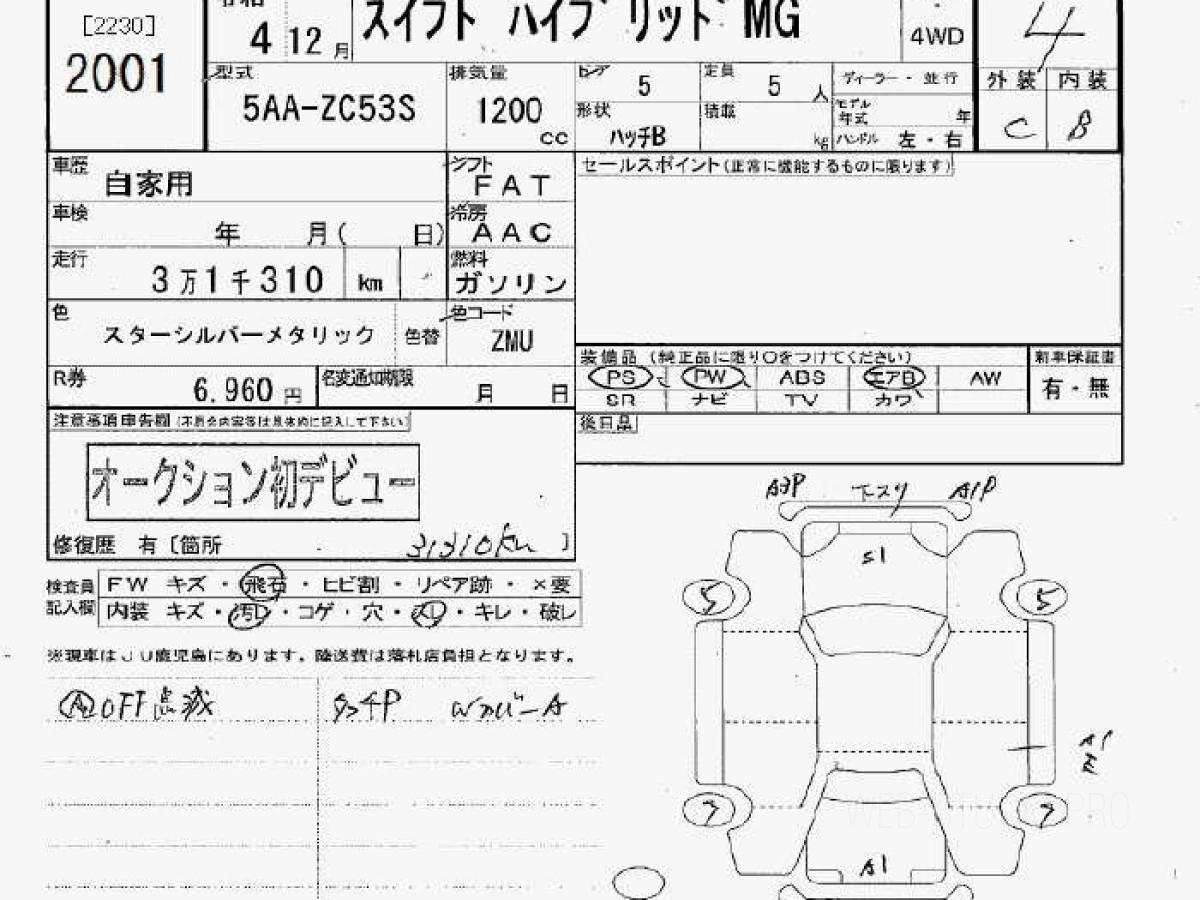 [2230]
2001
4 12月
スイフト ハイブリッド MG
4WD
4
型式
5AA-ZC53S
排気量
1200
cc
ドア
5
定員
5
人
形状
ハッチB
積載
kg
ディーラー・並行
モデル年式
年
ハンドル 左・右
外装 内装
C B
車歴
自家用
シフト
FAT
車検
年 月( 日)
冷房
AAC
走行
3万1千310 km
燃料
ガソリン
色
スターシルバーメタリック
色替
色コード
ZMU
R券
6,960 円
名変通知期限
月 日
セールスポイント(正常に機能するものに限ります)
装備品(純正品に限り○をつけてください)
PS PW ABS エアB AW
SR ナビ TV カワ
新車保証書
有・無
後日品
注意事項申告欄(不具合内容等は具体的に記入して下さい)
オークション初デビュー
修復歴 有〔箇所
31310km 〕
検査員記入欄
FW キズ・飛石・ヒビ割・リペア跡・×要
内装 キズ・汚レ・コゲ・穴・スレ・キレ・破レ
※現車はJU鹿児島にあります。陸送費は落札店負担となります。
Ⓐ OFF点滅
タッチP
A3P 下スリ A1P
S1
5 5
A1
7 7
A1
WEB PRO